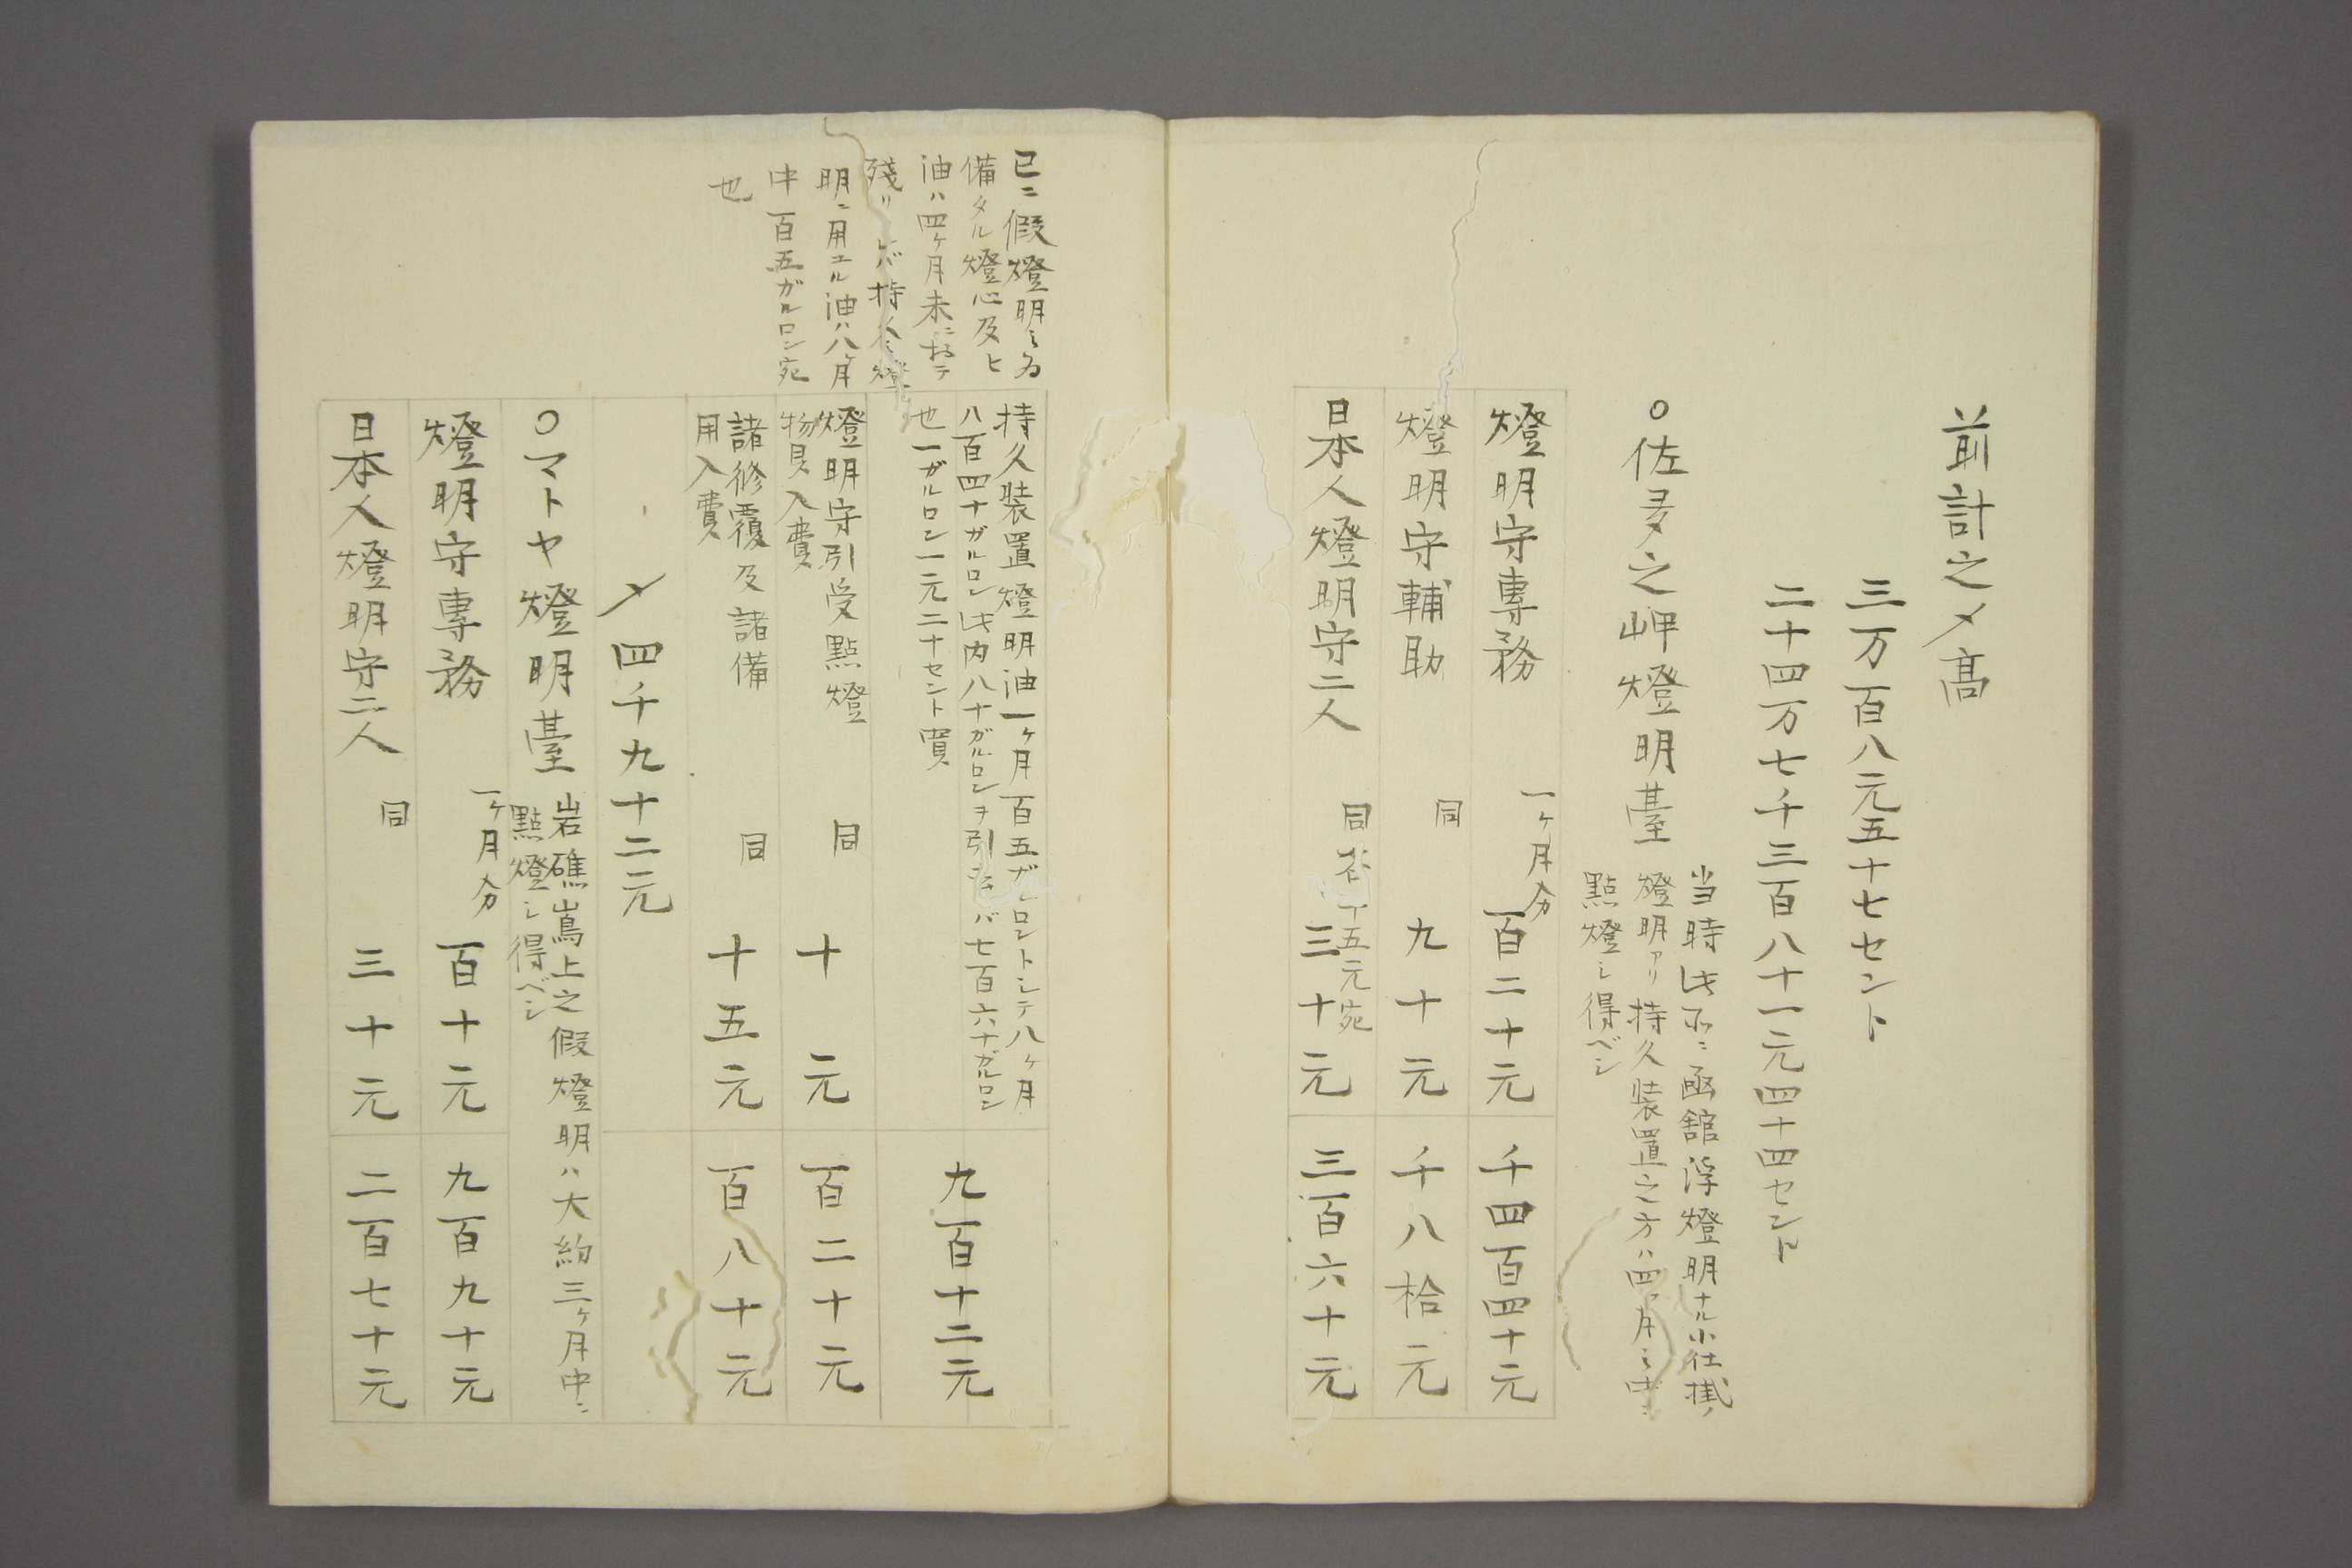 前計之〆高
三万百八元五十七セント
二十四万七千三百八十一元四十四セント
○佐多之岬燈明臺
当時此所ニ函舘浮燈明ナル小仕掛ノ
燈明アリ持久装置之方ハ四ヶ月之中ニ
點燈シ得ベシ
燈明守專務 一ヶ月分 百二十元 千四百四十元
燈明守輔助 同 九十元 千八拾元
日本人燈明守二人 同 十五元宛 三十元 三百六十元
已ニ假燈明之為
備タル燈心及ヒ
油ハ四ヶ月末ニおゐテ
残リ バ持久之燈
明ニ用エル油ハ八ヶ月
中百五ガルロン宛
也
持久装置燈明油一ヶ月百五ガルロントシテ八ヶ月
八百四十ガルロン此内八十ガルロンヲ引 バ七百六十ガルロン
也一ガルロン一元二十セント買
九百十二元
燈明守引受點燈
物具入費 同 十元 百二十元
諸修覆及諸備
用入費 同 十五元 百八十元
〆四千九十二元
○マトヤ燈明臺
岩礁嶌上之假燈明ハ大約三ヶ月中ニ
點燈シ得ベシ
燈明守專務 一ヶ月分 百十元 九百九十元
日本人燈明守二人 同 三十元 二百七十元